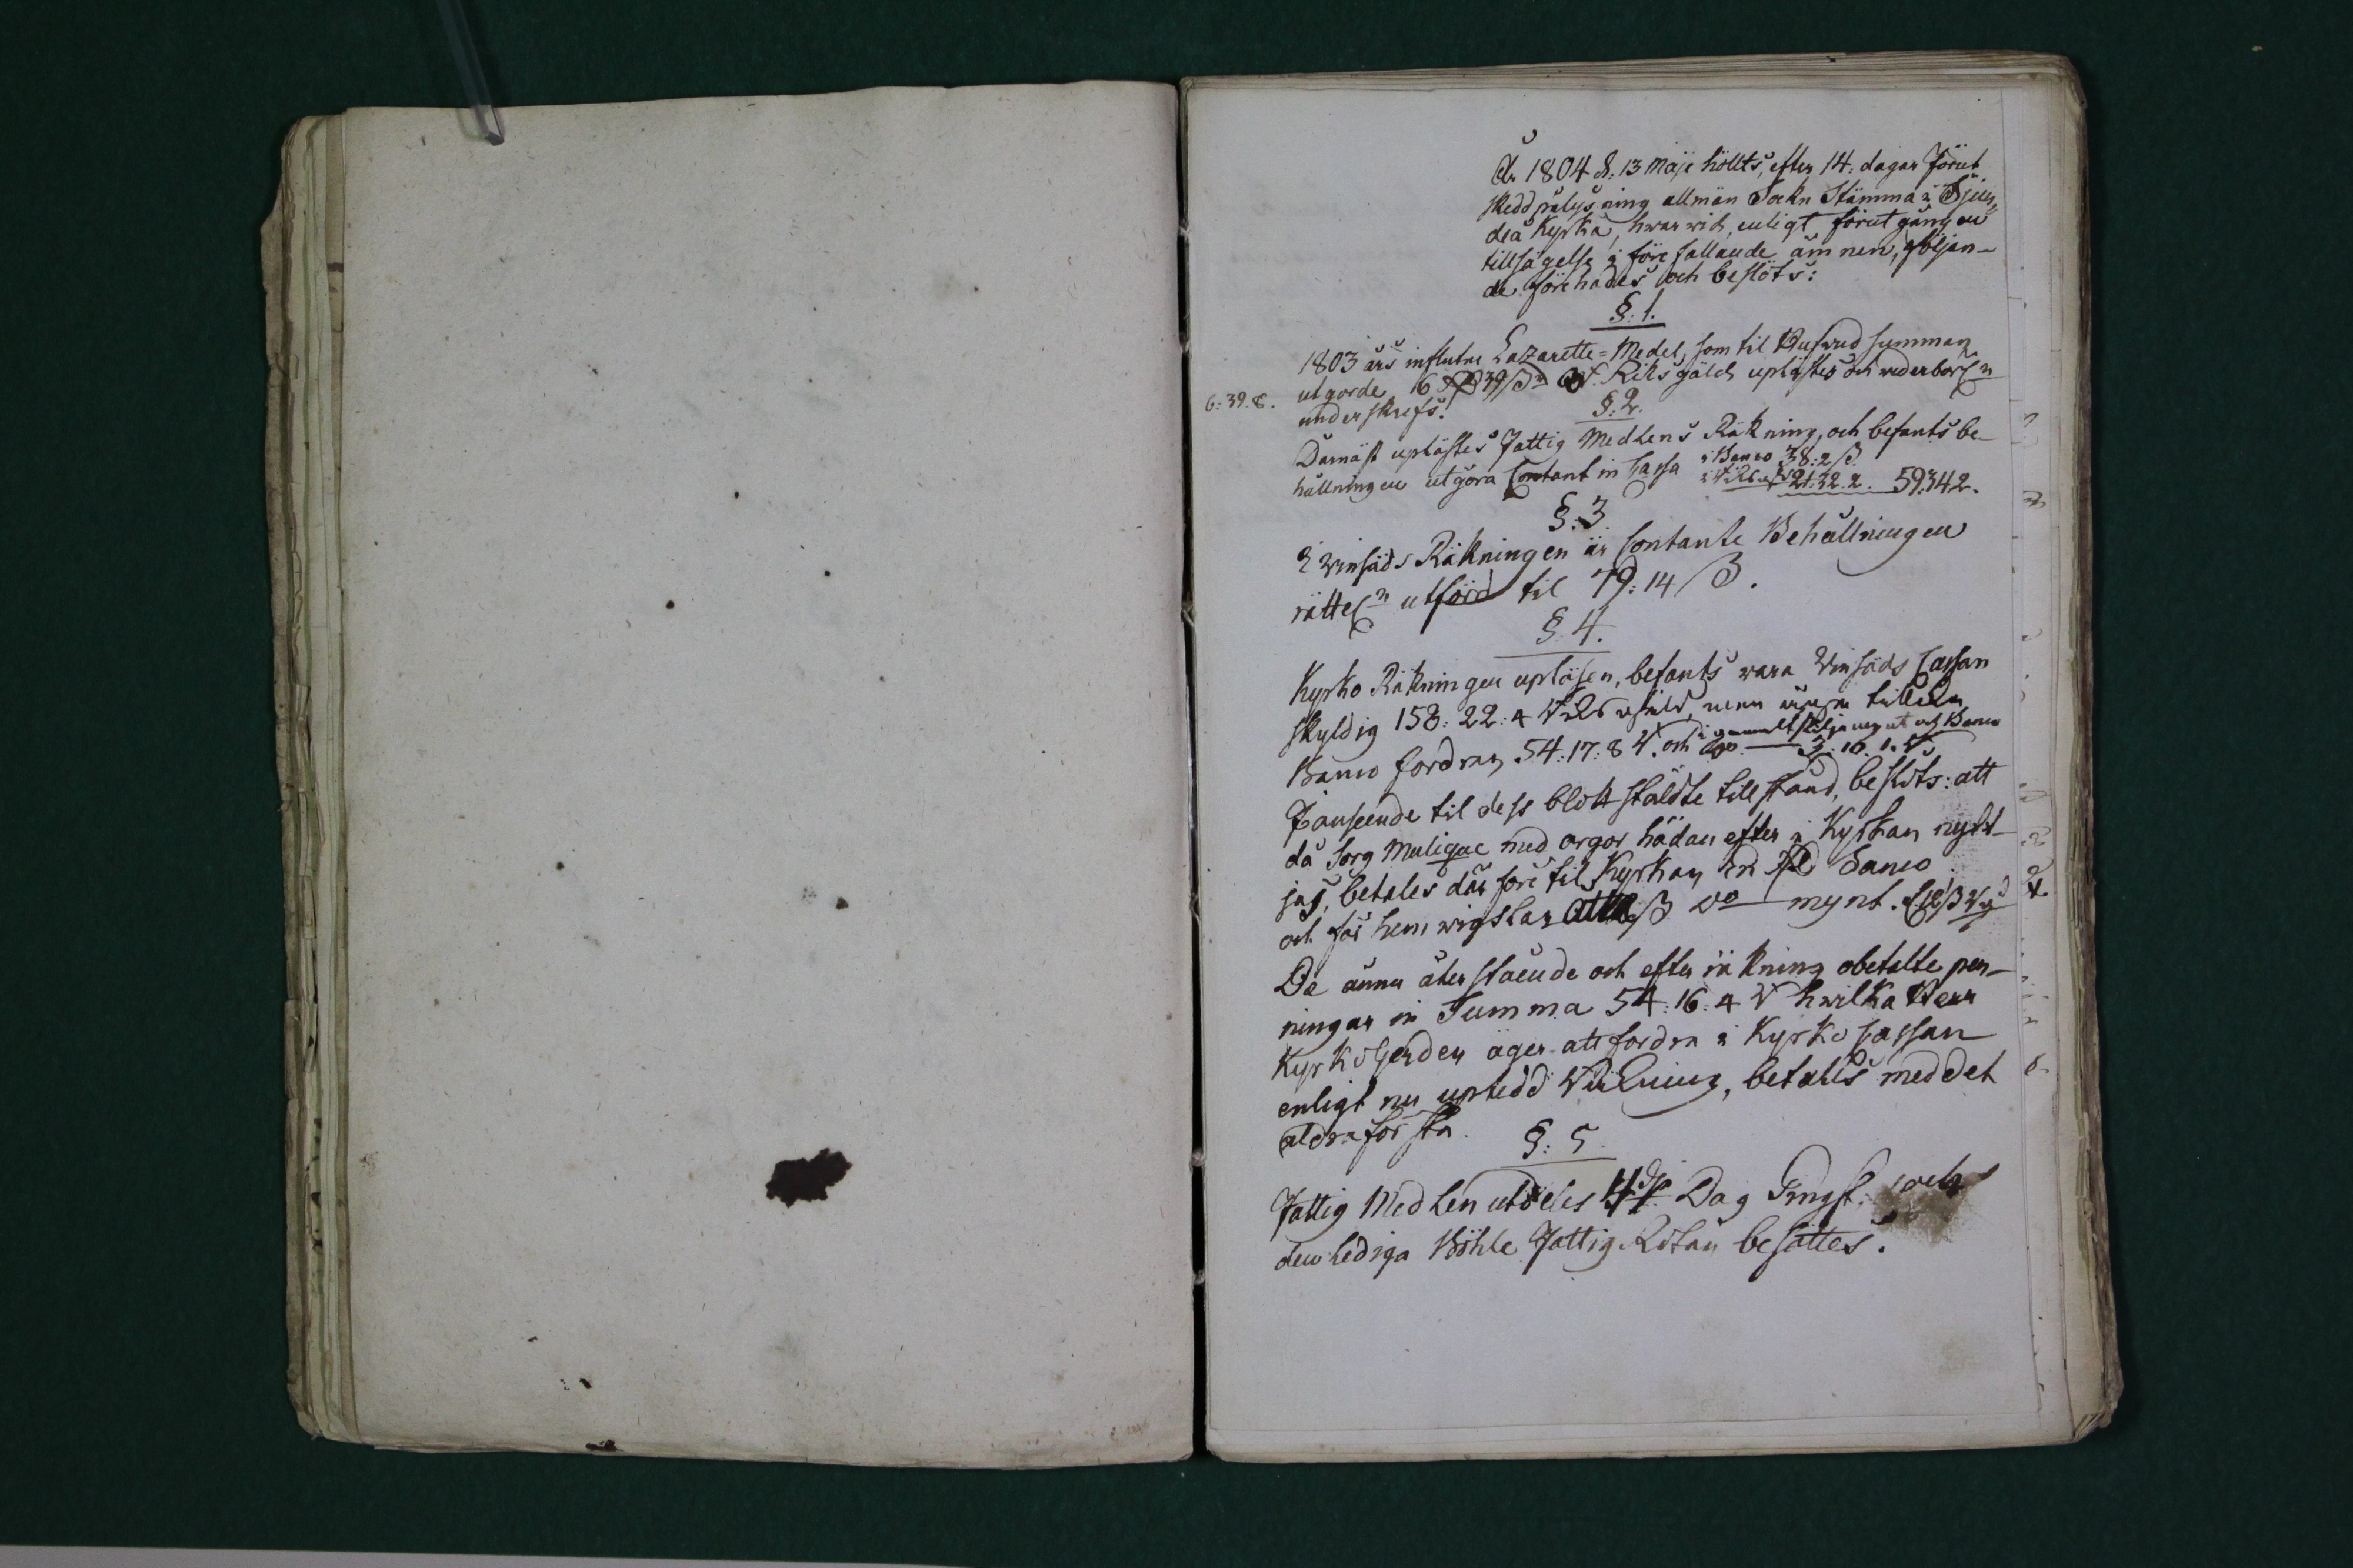 År 1804 d: 13 Maje höllts, efter 14: dagar förut
skedd pålysning allmän Sokn Stämma i Sjun-
deå Kyrka, hwarwid, enligt förutgången
tillsägelse i förefallande ämnen, följan-
de förehades och beslöts:
§: 1.
1803 års influtne Lazaretts=Medel, som til Hufwudsumman
utgorde 16 39 Riksgäld uplästes och wederbörl:n
6:39.8.
underskrefs.
§: 2.
Darnäst uplästes Fattig Medlens Räkning, och befants be-
hållningen utgöra Contant in Cassa i Banco 38:2 ß
21:32.2. 59.34.2.
§: 3.
I Winsäds Räkningen är Contante Behållningen
rättel:n utförd til 79: 14 ß.
§. 4.
Kyrko Räkningen upläsen, befants wara Winsäds Cassan
skyldig 158: 22: 4 men
Banco fordran 54: 17: 8 och
I anseende til dess blottstäldte tillstånd, beslöts: att
då Sorg Musique med orgor hädanefter i Kyrkan nytt-
jas, betales därföre til Kyrkan en Banco
och för hemwigslar ß do mynt.
De ännu återstående och efter räkning obetalte pen-
ningar in Summa 54: 16: 4 hwilka Herr
Kyrkoherden äger att fordra i Kyrko Cassan
enligt nu uptedd Räkning, betales med det
aldraförsta.
§: 5
Fattig Medlen utdeles Dag Pingst: och
den lediga Böhle Fattig Rotan besättes.